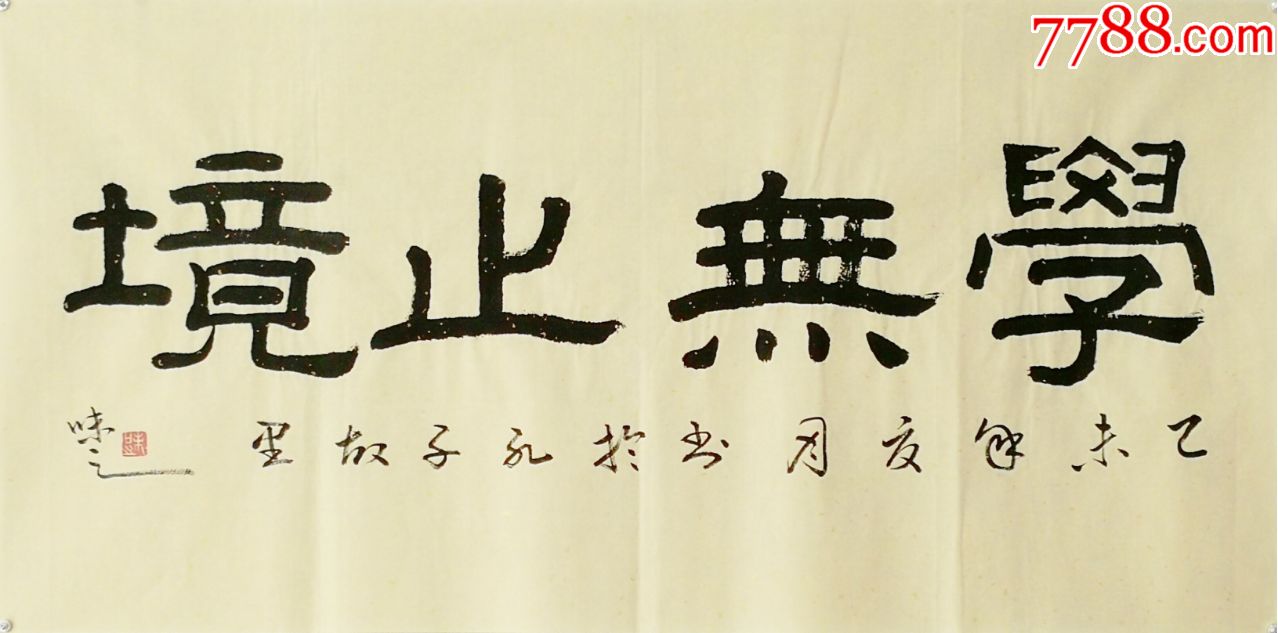 7788.com
學無止境
乙未年夏月书於孔子故里
味之
味